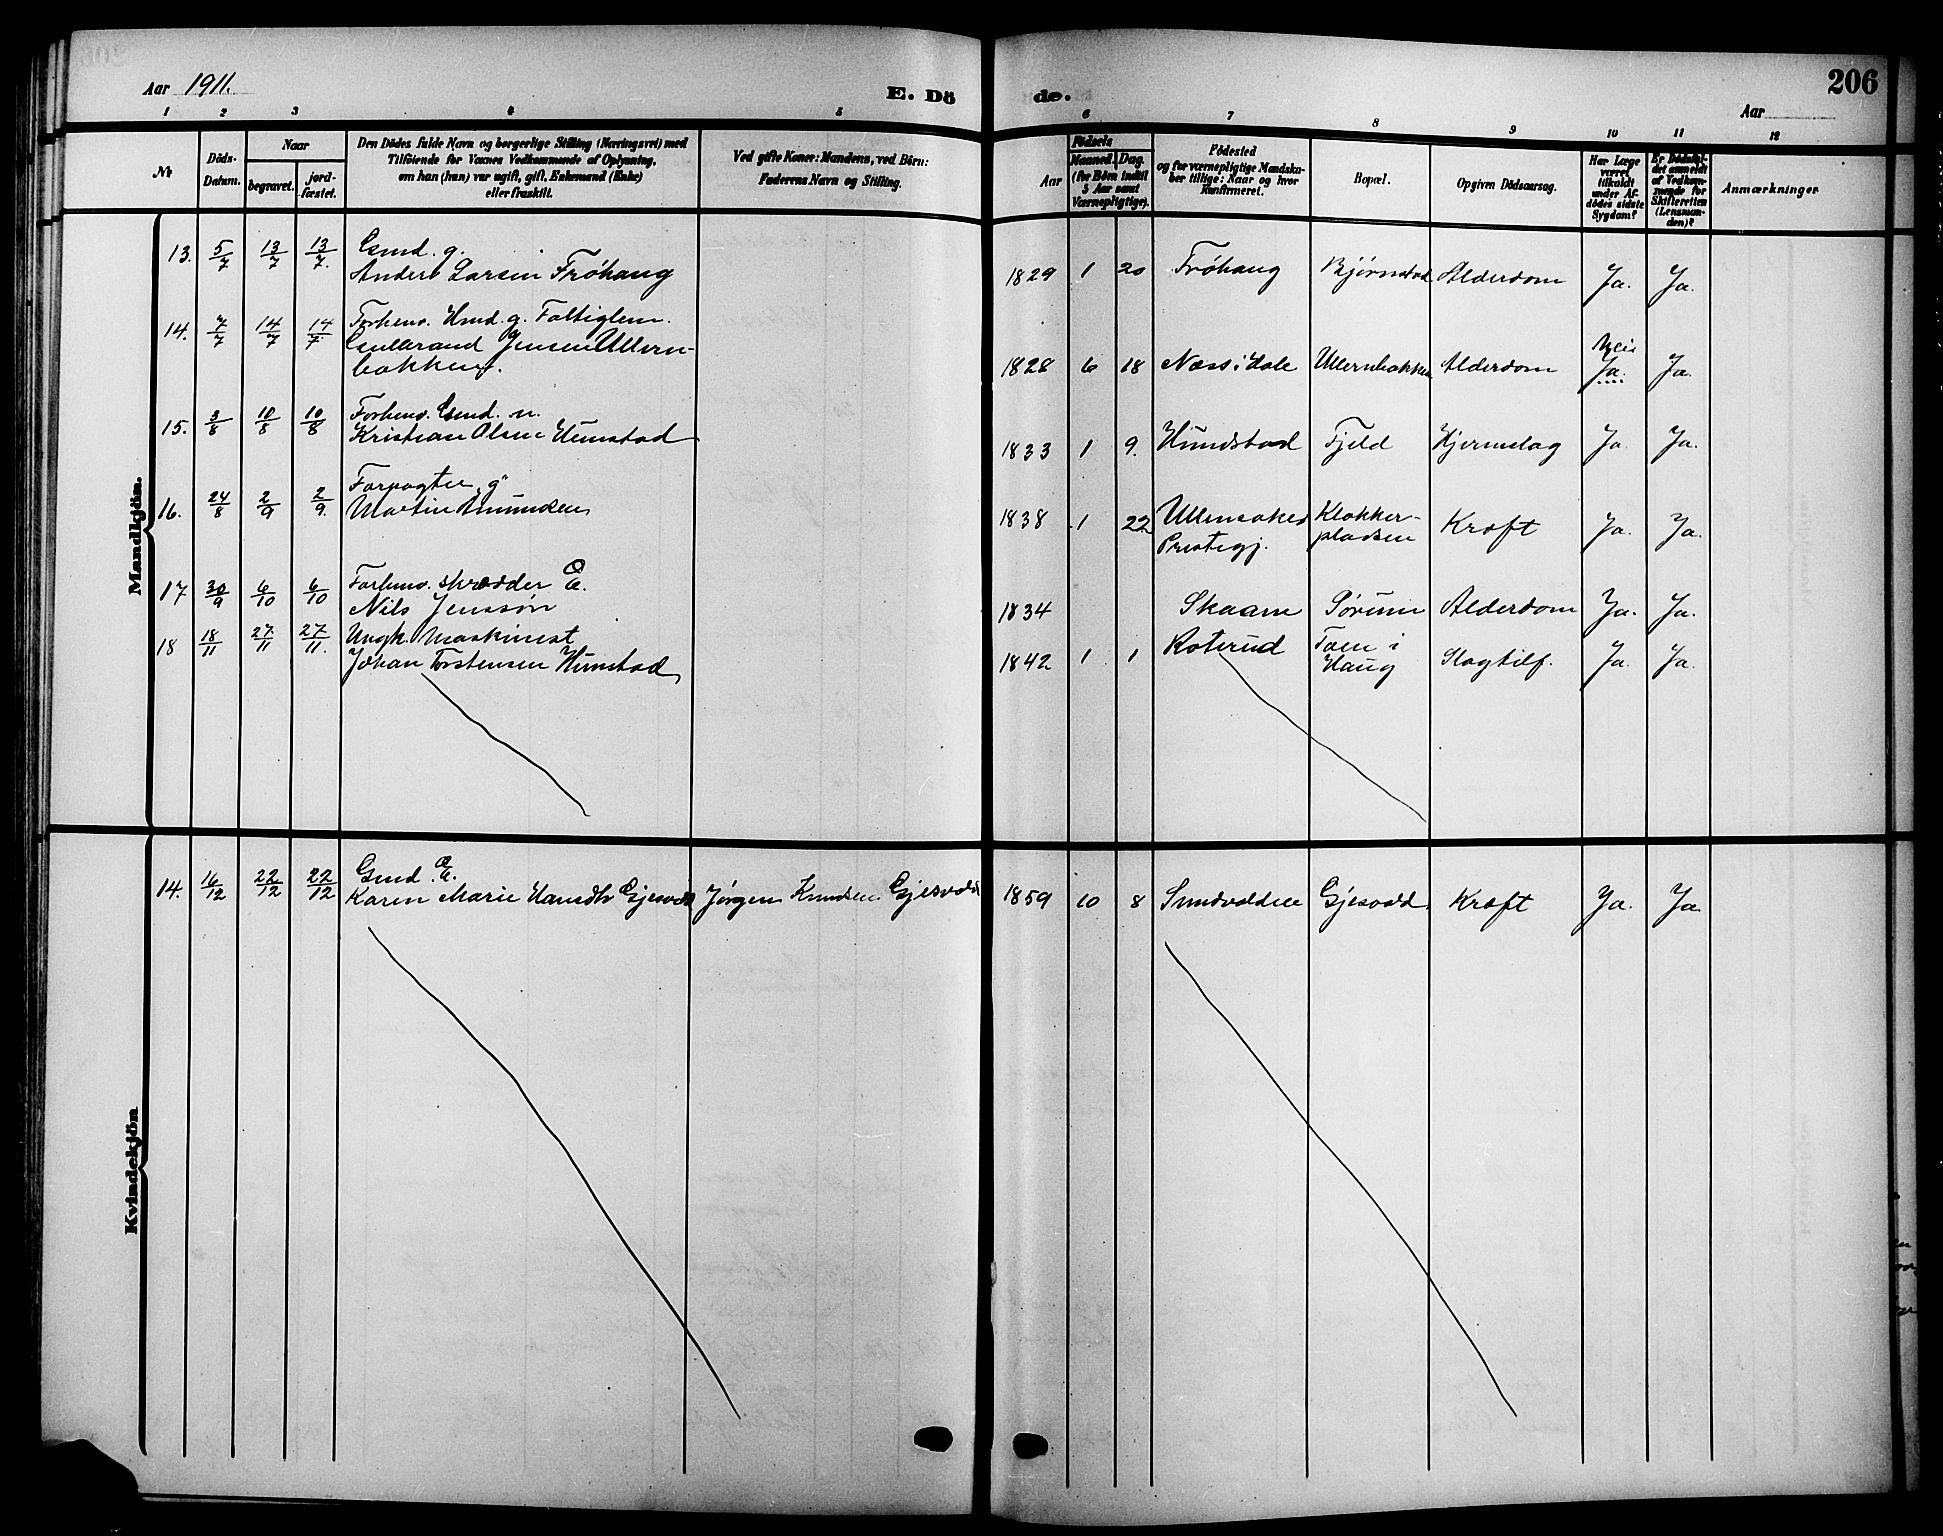 Aar 1911.
E. Dö
de.
206
Aar
1 2 3 4 5 6 7 8 9 10 11 12
№
Döds-Datum.
Naar
begravet.
jord-fæstet.
Den Dödes fulde Navn og borgerlige Stilling (Næringsvei) med
Tilföiende for Voxnes Vedkommende af Oplysning,
om han (hun) var ugift, gift, Enkemand (Enke)
eller fraskilt.
Ved gifte Koner: Mandens, ved Börn:
Faderens Navn og Stilling.
Födsels
Aar
Maaned. Dag.
(for Börn indtil
5 Aar samt
Værnepligtige).
Födested
og for værnepligtige Mandska-
ber tillige: Naar og hvor
konfirmeret.
Bopæl.
Opgiven Dödsaarsag.
Har Læge
været
tilkaldt
under Af-
dödes sidste
Sygdom?
Er Dödsfal-
det anmeldt
af Vedkom-
mende for
Skifteretten
(Lensman-
den)?
Anmærkninger
Mandkjön.
13. 5/7 13/7 13/7. Gmd. g.
Anders Larsen Frøhaug 1829 1 20 Frøhaug Bjørnstad Alderdom Ja. Ja.
14. 7/7 14/7 14/7. Forhenv. Hmd. g. Fattiglem.
Gulbrand Jensen Ullern-
bakken. 1828 6 18 Næss i Hole Ullernbakken Alderdom Nei Ja. Ja.
15. 3/8 10/8 10/8 Forhenv. Gmd. u.
Kristian Olsen Hunstad 1833 1 9. Hundstad Fjeld Hjerneslag Ja. Ja.
16. 24/8 2/9 2/9. Forpagter g.
Martin Amundsen 1838 1 22 Ullensaker
Prestegj. Klokker-
pladsen Kræft Ja. Ja.
17 30/9 6/10 6/10 Forhenv. skrædder E.
Nils Jenssøn 1834 Skaane Sørum Alderdom Ja. Ja.
18 18/11 27/11 27/11. Ungk. Maskinist
Johan Torstensen Hunstad 1842 1 1 Roterud Toen i
Haug Slagtilf. Ja. Ja.
Kvindekjön
14. 16/12 22/12 22/12 Gmd. E.
Karen Marie Hansdtr Gjesvold Jørgen Knudsen Gjesvold 1859 10 8 Sundvolden Gjesvold Kræft Ja. Ja.